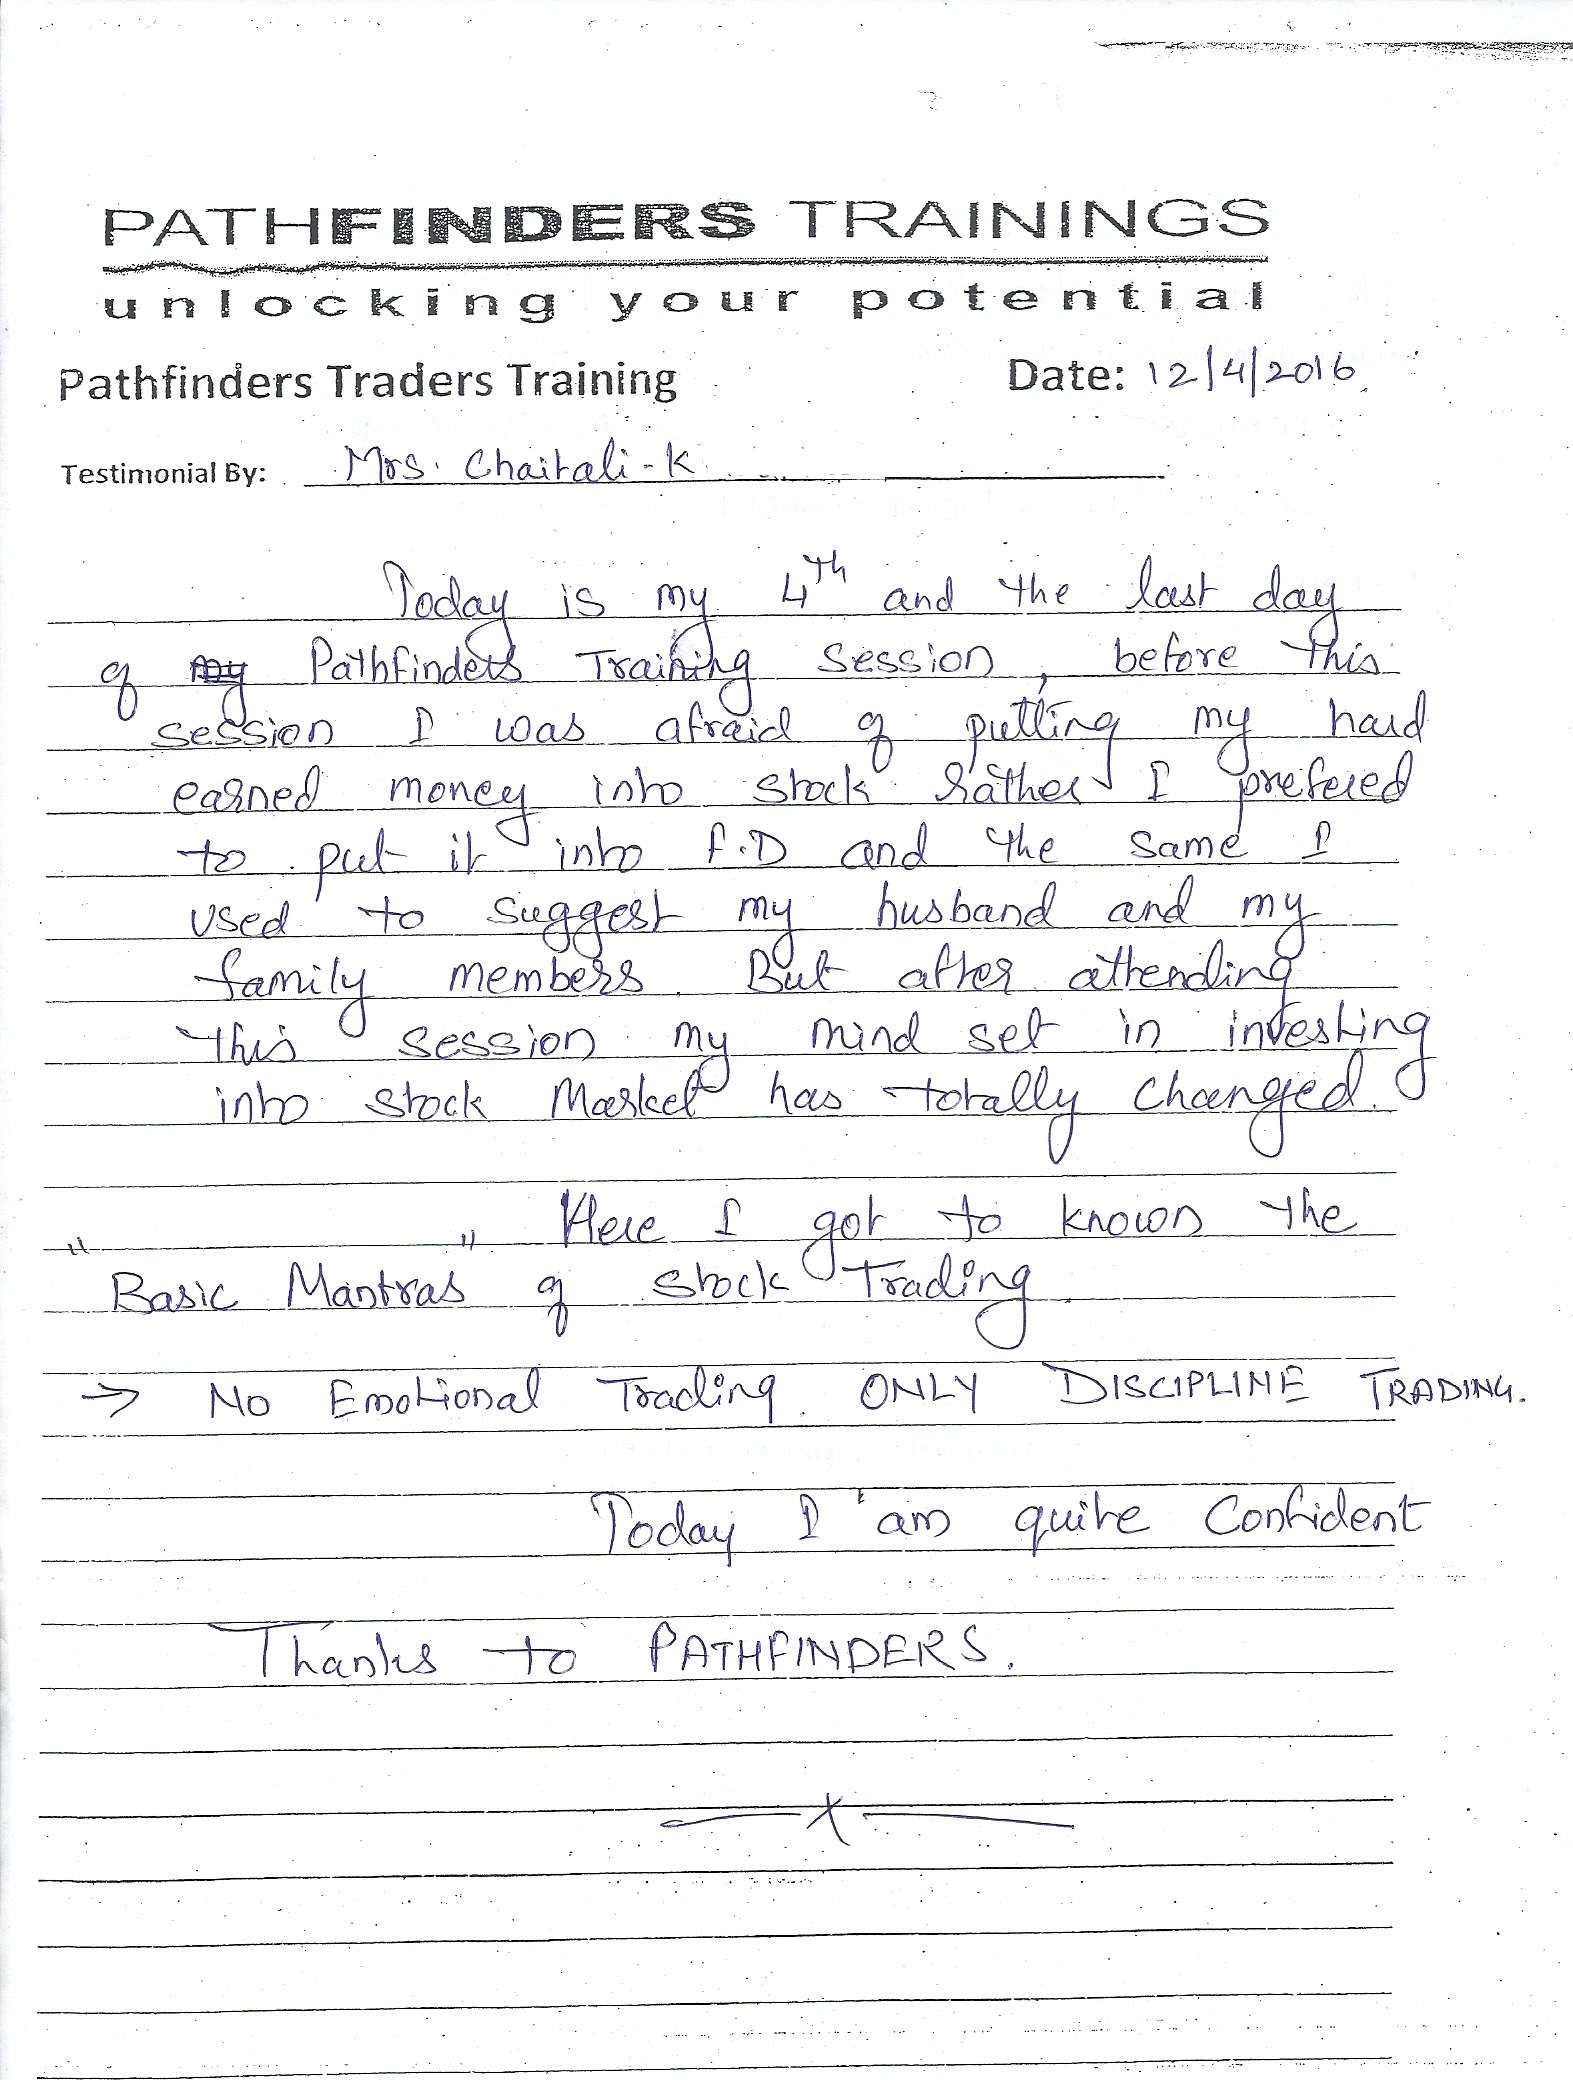 PATHFINDERS TRAININGS
unlocking your potential
Pathfinders Traders Training Date: 12/4/2016
Testimonial By: Mrs. Chaitali-K
Today is my 4th and the last day
of my Pathfinders Training session, before this
session I was afraid of putting my hard
earned money into stock rather I prefered
to put it into F.D and the same I
used to suggest my husband and my
family members. But after attending
this session my mind set in investing
into stock Market has totally changed.
Here I got to known the
"Basic Mantras" of stock Trading.
→ No Emotional Trading. ONLY DISCIPLINE TRADING.
Today I am quite Confident
Thanks to PATHFINDERS.